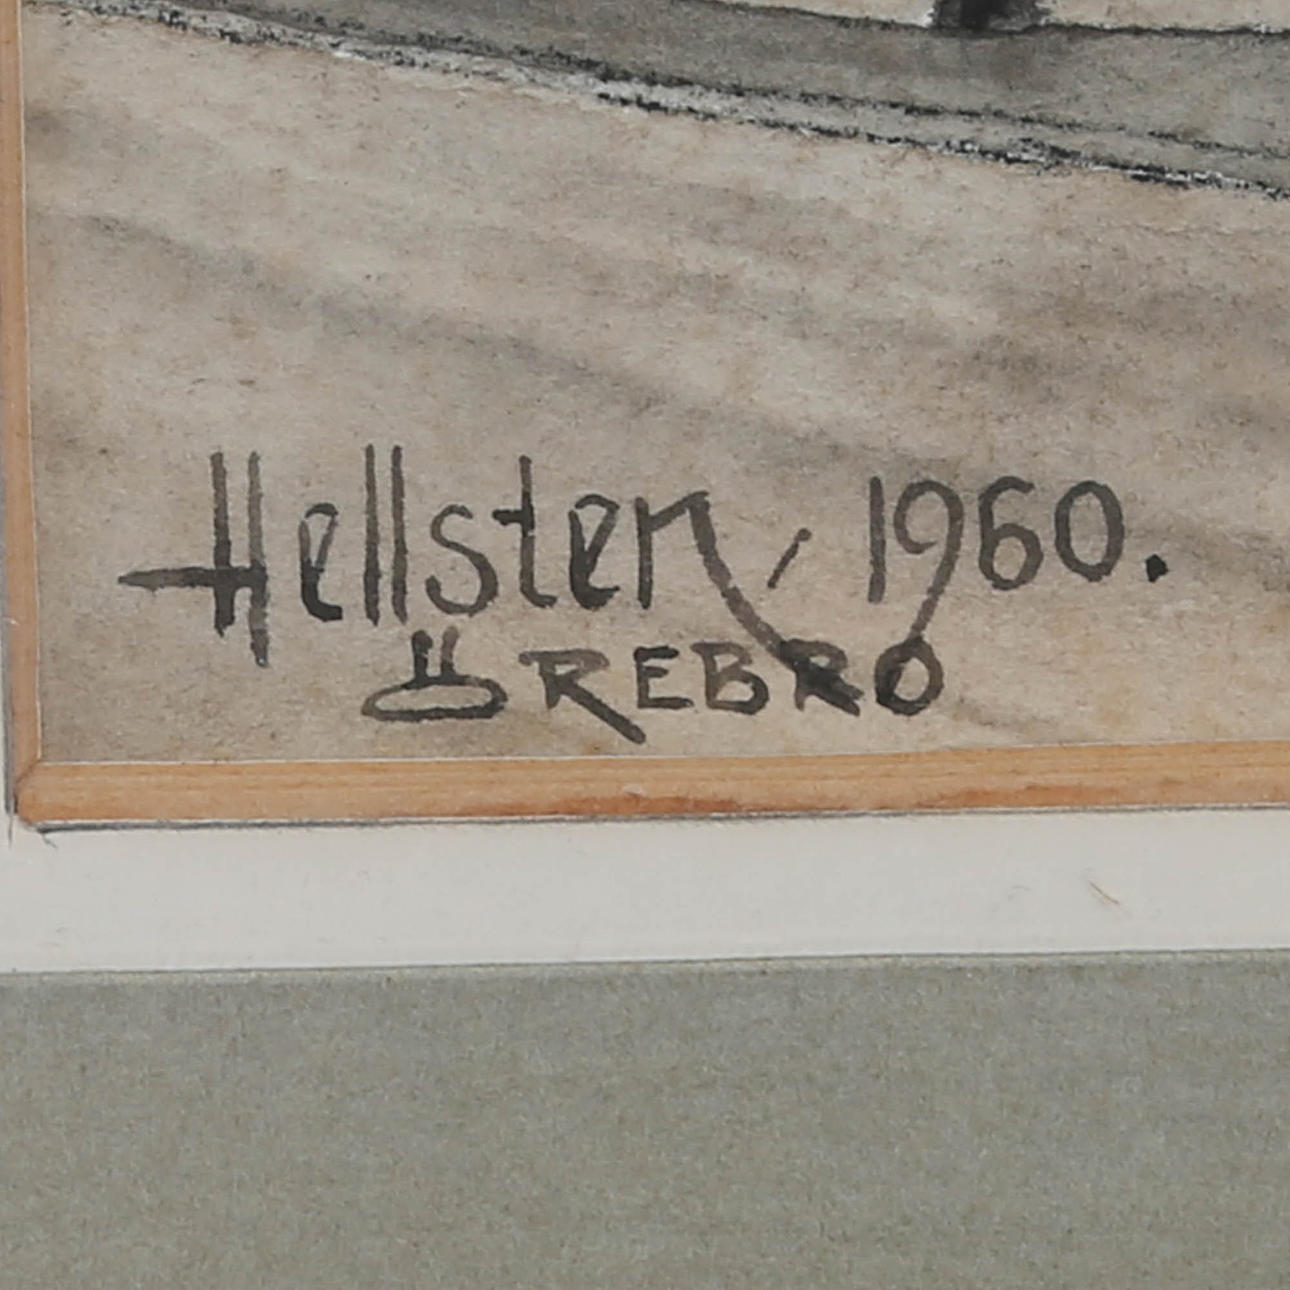 Hellsten, 1960.
ÖREBRO